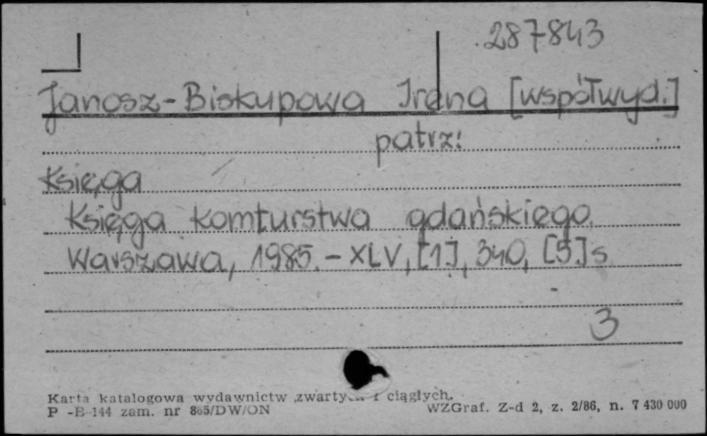 287843
Janosz-Biskupowa Irena [współwyd.]
patrz:
Księga
Księga komturstwa gdańskiego.
Warszawa, 1985. – XLV, [1], 340, [5] s
3
Karta katalogowa wydawnictw zwartych i ciągłych.
P -B 144 zam. nr 865/DW/ON
WZGraf. Z-d 2, z. 2/86, n. 7 430 000